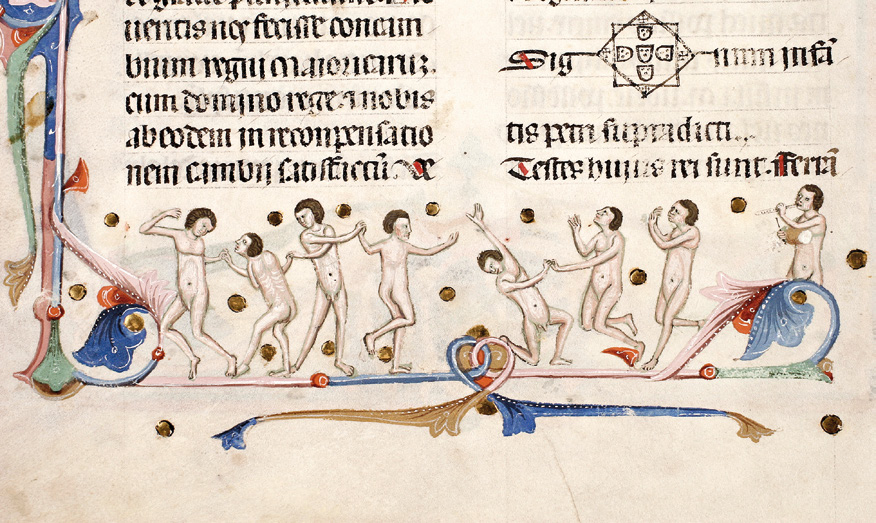 uentis nos fecisse concam
bium regni maioricaruz.
cum domino rege a nobis
ab eodem in reconpensatio
nem cambij satisffactũ
Sig num infã
tis petri supradicti.
Testes huius rei sunt. fferrã